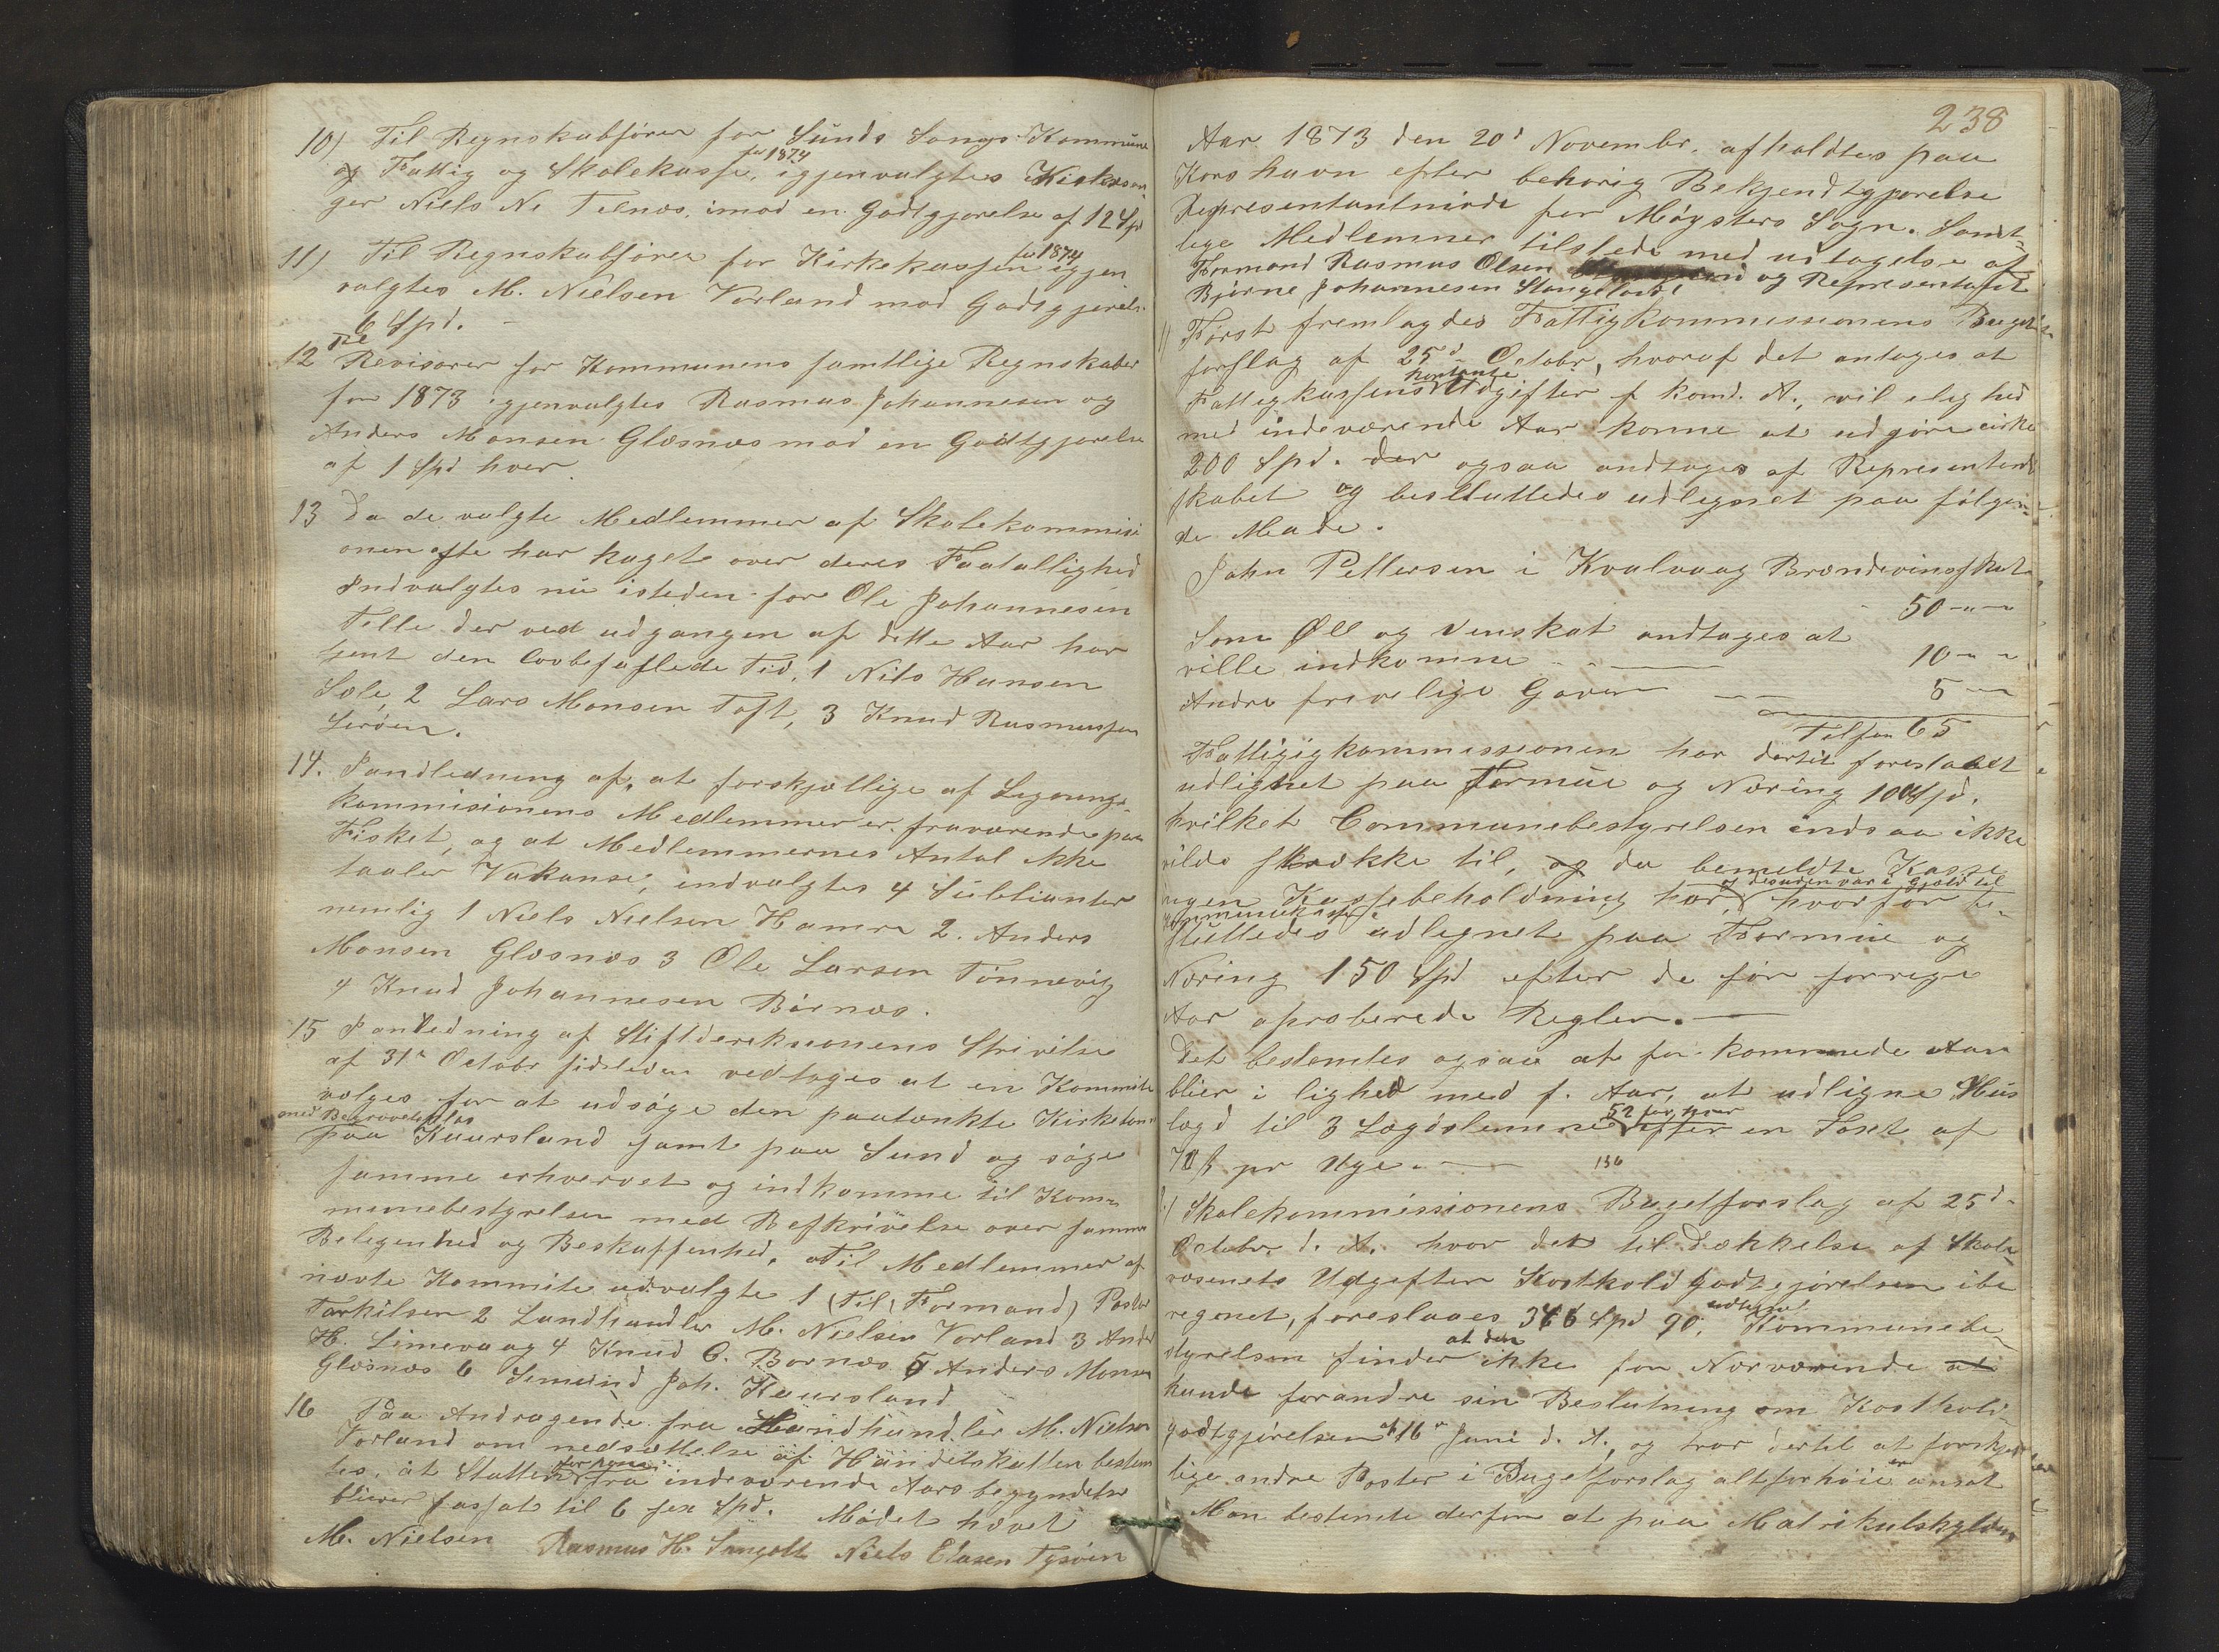 10) Til Regnskabförer for Sunds Songs Kommune
og Fattig og Skolekasse, for 1874 igjenvalgtes Kirkesan
ger Niels Ni Telnæs, imod en Godtgjorelse af 12 Spd
11) Til Regnskabförer for Kirkekassen for 1874 igjen
valgtes M. Nielsen Vorland mod Godtgjorels.
6 Spd. –
12 Til Revisorer for Kommunens samtlige Regnskaber
for 1873 igjenvalgtes Rasmus Johannesen og
Anders Monsen Glæsnæs mod en Godtgjorelse
af 1 Spd hver
13 Da de valgte Medlemmer af Skolekommisi
onen ofte har klaget over deres Faatallighed
Indvalgtes nu isteden for Ole Johannesen
Telle der ved udgangen af dette Aar har
tjent den lovbefaflede Tid, 1 Nils Hansen
Sæle, 2 Lars Monsen Toft, 3 Knud Rasmussen
Leröen.
14. I andledning af, at forskjællige af Lignings-
kommisionens Medlemmer er fraværende paa
Fisket, og at Medlemmernes Antal ikke
taaler Vakanse, indvalgtes 4 Sublianter
nemlig 1 Niels Nielsen Hamre 2. Anders
Monsen Glæsnæs 3 Ole Larsen Tönnevig
4 Knud Johannesen Börnæs.
15 I anledning af Stiftdireksionens Skrivelse
af 31te Octobr sidsleden vedtoges at en Kommite
vælges for at udsöge den paatænkte Kirketomt
med Begravelsplas
paa Kaursland samt paa Sund og söge
samme erhvervet og indkomme til Kom-
munebestyrelsen med Beskrivelse over samme
Belegenhed og Beskaffenhed. Til Medlemmer af
nævte Kommite udvalgte 1 (til Formand) Pastor
Tarkilsen 2 Landhandler M. Nielsen Vorland 3 Anders
H. Limevaag 4 Knud O. Bornæs 5 Anders Monsen
Glæsnæs 6 Simund Joh. Kaursland
16 Paa Andragende fra Handhandler M. Nielsen
Vorland om nedsættelse af Handelskatten bestem
tes, at Skatten for hans fra indeværende Aars begyndelse
bliver fassat til 6 sex Spd. Mödet hævet
M. Nielsen Rasmus H. Sangolt Niels Elasen Tysöen
238
Aar 1873 den 20d Novembr. afholdtes paa
Korshavn efter behörig Bekjendtgjorelse
Representantmöde for Mögsters Sogn. Samt-
lige Medlemmer tilstede med udtagelse af
Formand Rasmus Olsen og Representant
Björne Johannesen Stangeland
1) Först fremlagdes Fattigkommissionens Buget
forslag af 25d Octobr, hvoraf det antages at
Fattigkassens kontante Udgifter f komd. A., vil elighed
med indeværende Aar komme at udgjöre cirka
200 Spd. der ogsaa andtages af Representant
skabet og besluttedes udlignet paa fölgen-
de Made.
John Pettersen i Kvalvaag Brændevinsskat
50 -„-„
Som Øll og Vinskat andtages at
ville indkomme 10 -„-
Andre frivelige Gaver 5 -„
Tilsam 65
Fattigigkommissionen har dertil foreslaaet
udlignet paa Formue og Næring 100 Spd.
hvilket Communebestyrelsen indsaa ikke
vilde skrække til, og da bemeldte Kasse
ingen Kassebeholdning har, og desuden var i Gjæld til
Kommunekassen, hvorfor be-
sluttedes udlignet paa Formue og
Næring 150 Spd efter de for forrige
Aar aproberede Regler.
Det bestemtes ogsaa at for kommende Aar
blier i lighed med f. Aar, at udligne Hus
lægd til 3 Lægdslemmer 52 for hver efter en Taxt af
72 ß pr Uge. 156
2) Skolekommissionens Bugetforslag af 25d
Octobr. d. A. hvor det til Dækkelse af Skole
væsenets Udgifter Kostholdgodtgjörelsen ibe
regenet, foreslaaes 366 Spd 90, udlignet. Kommunebe
styrelsen finder at den ikke for Nærværende at
kunde forandre sin Beslutning om Kosthold-
godtgjörelsen af 16de Juni d. A., og tror dertil at forskjel
lige andre Poster i Bugetforslag altforhöie er ansat
Man bestemte derfor at paa Matrikulskylden